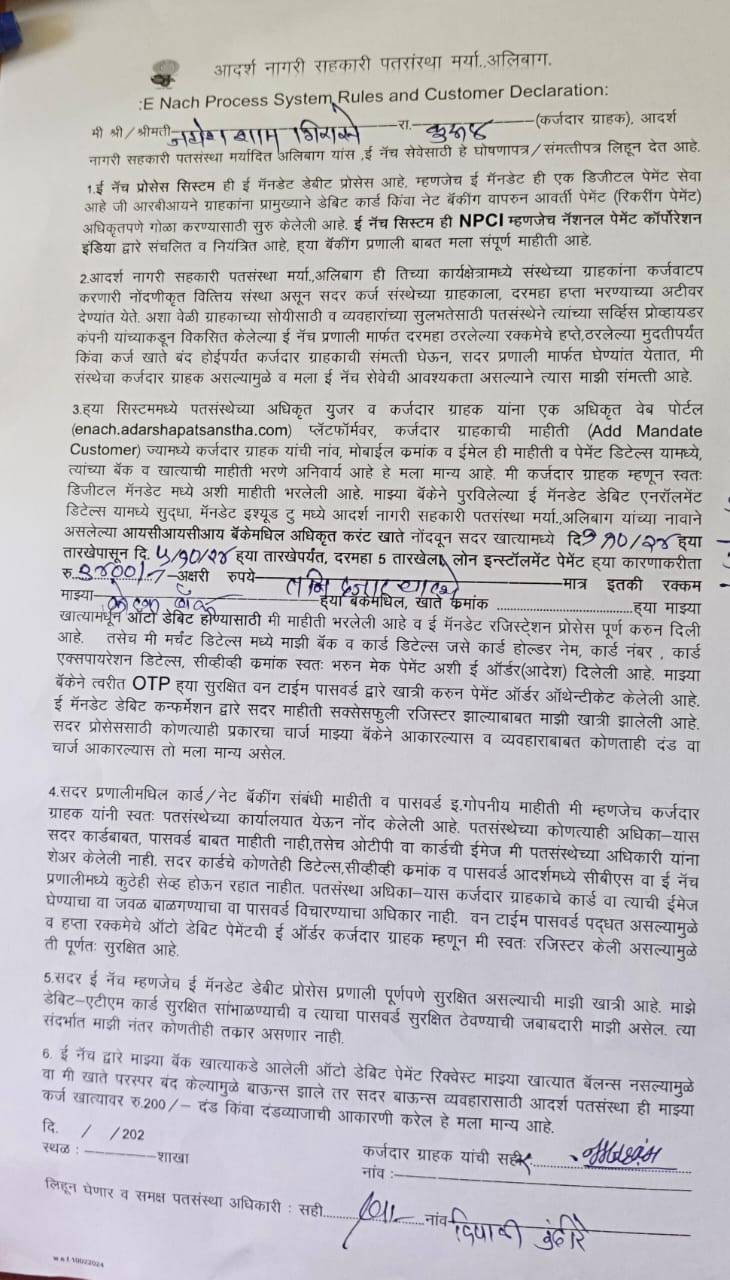 आदर्श नागरी सहकारी पतसंस्था मर्या.,अलिबाग.
:E Nach Process System Rules and Customer Declaration:
मी श्री/श्रीमती रा. (कर्जदार ग्राहक), आदर्श
नागरी सहकारी पतसंस्था मर्यादित अलिबाग यांस ,ई नॅच सेवेसाठी हे घोषणापत्र/संमत्तीपत्र लिहून देत आहे.
1.ई नॅच प्रोसेस सिस्टम ही ई मॅनडेट डेबीट प्रोसेस आहे, म्हणजेच ई मॅनडेट ही एक डिजीटल पेमेंट सेवा
आहे जी आरबीआयने ग्राहकांना प्रामुख्याने डेबिट कार्ड किंवा नेट बॅकींग वापरुन आवर्ती पेमेंट (रिकरींग पेमेंट)
अधिकृतपणे गोळा करण्यासाठी सुरु केलेली आहे. ई नॅच सिस्टम ही NPCI म्हणजेच नॅशनल पेमेंट कॉर्पोरेशन
इंडिया द्वारे संचलित व नियंत्रित आहे, ह्या बॅकींग प्रणाली बाबत मला संपूर्ण माहीती आहे.
2.आदर्श नागरी सहकारी पतसंस्था मर्या.,अलिबाग ही तिच्या कार्यक्षेत्रामध्ये संस्थेच्या ग्राहकांना कर्जवाटप
करणारी नोंदणीकृत वित्तिय संस्था असून सदर कर्ज संस्थेच्या ग्राहकाला, दरमहा हप्ता भरण्याच्या अटीवर
देण्यांत येते. अशा वेळी ग्राहकाच्या सोयीसाठी व व्यवहारांच्या सुलभतेसाठी पतसंस्थेने त्यांच्या सर्व्हिस प्रोव्हायडर
कंपनी यांच्याकडून विकसित केलेल्या ई नॅच प्रणाली मार्फत दरमहा ठरलेल्या रक्कमेचे हप्ते,ठरलेल्या मुदतीपर्यंत
किंवा कर्ज खाते बंद होईपर्यंत कर्जदार ग्राहकाची संमत्ती घेऊन, सदर प्रणाली मार्फत घेण्यांत येतात, मी
संस्थेचा कर्जदार ग्राहक असल्यामुळे व मला ई नॅच सेवेची आवश्यकता असल्याने त्यास माझी संमत्ती आहे.
3.ह्या सिस्टममध्ये पतसंस्थेच्या अधिकृत युजर व कर्जदार ग्राहक यांना एक अधिकृत वेब पोर्टल
(enach.adarshapatsanstha.com) प्लॅटफॉर्मवर, कर्जदार ग्राहकाची माहीती (Add Mandate
Customer) ज्यामध्ये कर्जदार ग्राहक यांची नांव, मोबाईल क्रमांक व ईमेल ही माहीती व पेमेंट डिटेल्स यामध्ये,
त्यांच्या बॅक व खात्याची माहीती भरणे अनिवार्य आहे हे मला मान्य आहे. मी कर्जदार ग्राहक म्हणून स्वतः
डिजीटल मॅनडेट मध्ये अशी माहीती भरलेली आहे. माझ्या बॅकेने पुरविलेल्या ई मॅनडेट डेबिट एनरॉलमेंट
डिटेल्स यामध्ये सुद्धा, मॅनडेट इश्यूड टु मध्ये आदर्श नागरी सहकारी पतसंस्था मर्या.,अलिबाग यांच्या नावाने
असलेल्या आयसीआयसीआय बॅकेमधिल अधिकृत करंट खाते नोंदवून सदर खात्यामध्ये दि. ह्या
तारखेपासून दि. ५/१०/२४ ह्या तारखेपर्यंत, दरमहा 5 तारखेला लोन इन्स्टॉलमेंट पेमेंट ह्या कारणाकरीता
रु. अक्षरी रुपये मात्र इतकी रक्कम
माझ्या ह्या बॅकेमधिल, खाते क्रमांक ..................ह्या माझ्या
खात्यामधून ऑटो डेबिट होण्यासाठी मी माहीती भरलेली आहे व ई मॅनडेट रजिस्ट्रेशन प्रोसेस पूर्ण करुन दिली
आहे. तसेच मी मर्चंट डिटेल्स मध्ये माझी बॅक व कार्ड डिटेल्स जसे कार्ड होल्डर नेम, कार्ड नंबर , कार्ड
एक्सपायरेशन डिटेल्स, सीव्हीव्ही क्रमांक स्वतः भरुन मेक पेमेंट अशी ई ऑर्डर(आदेश) दिलेली आहे. माझ्या
बॅकेने त्वरीत OTP ह्या सुरक्षित वन टाईम पासवर्ड द्वारे खात्री करुन पेमेंट ऑर्डर ऑथेन्टीकेट केलेली आहे.
ई मॅनडेट डेबिट कन्फर्मेशन द्वारे सदर माहीती सक्सेसफुली रजिस्टर झाल्याबाबत माझी खात्री झालेली आहे.
सदर प्रोसेससाठी कोणत्याही प्रकारचा चार्ज माझ्या बॅकेने आकारल्यास व व्यवहाराबाबत कोणताही दंड वा
चार्ज आकारल्यास तो मला मान्य असेल.
4.सदर प्रणालीमधिल कार्ड/नेट बॅकींग संबंधी माहीती व पासवर्ड इ.गोपनीय माहीती मी म्हणजेच कर्जदार
ग्राहक यांनी स्वतः पतसंस्थेच्या कार्यालयात येऊन नोंद केलेली आहे. पतसंस्थेच्या कोणत्याही अधिका-यास
सदर कार्डबाबत, पासवर्ड बाबत माहीती नाही,तसेच ओटीपी वा कार्डची ईमेज मी पतसंस्थेच्या अधिकारी यांना
शेअर केलेली नाही. सदर कार्डचे कोणतेही डिटेल्स,सीव्हीव्ही क्रमांक व पासवर्ड आदर्शमध्ये सीबीएस वा ई नॅच
प्रणालीमध्ये कुठेही सेव्ह होऊन रहात नाहीत. पतसंस्था अधिका-यास कर्जदार ग्राहकाचे कार्ड वा त्याची ईमेज
घेण्याचा वा जवळ बाळगण्याचा वा पासवर्ड विचारण्याचा अधिकार नाही. वन टाईम पासवर्ड पद्धत असल्यामुळे
व हप्ता रक्कमेचे ऑटो डेबिट पेमेंटची ई ऑर्डर कर्जदार ग्राहक म्हणून मी स्वतः रजिस्टर केली असल्यामुळे
ती पूर्णतः सुरक्षित आहे.
5.सदर ई नॅच म्हणजेच ई मॅनडेट डेबीट प्रोसेस प्रणाली पूर्णपणे सुरक्षित असल्याची माझी खात्री आहे. माझे
डेबिट-एटीएम कार्ड सुरक्षित सांभाळण्याची व त्याचा पासवर्ड सुरक्षित ठेवण्याची जबाबदारी माझी असेल. त्या
संदर्भात माझी नंतर कोणतीही तक्रार असणार नाही.
6. ई नॅच द्वारे माझ्या बॅक खात्याकडे आलेली ऑटो डेबिट पेमेंट रिक्वेस्ट माझ्या खात्यात बॅलन्स नसल्यामुळे
वा मी खाते परस्पर बंद केल्यामुळे बाऊन्स झाले तर सदर बाऊन्स व्यवहारासाठी आदर्श पतसंस्था ही माझ्या
कर्ज खात्यावर रु.200/- दंड किंवा दंडव्याजाची आकारणी करेल हे मला मान्य आहे.
दि. / /202
स्थळ : शाखा
कर्जदार ग्राहक यांची सही
नांव :
लिहून घेणार व समक्ष पतसंस्था अधिकारी : सही नांव दिपाली